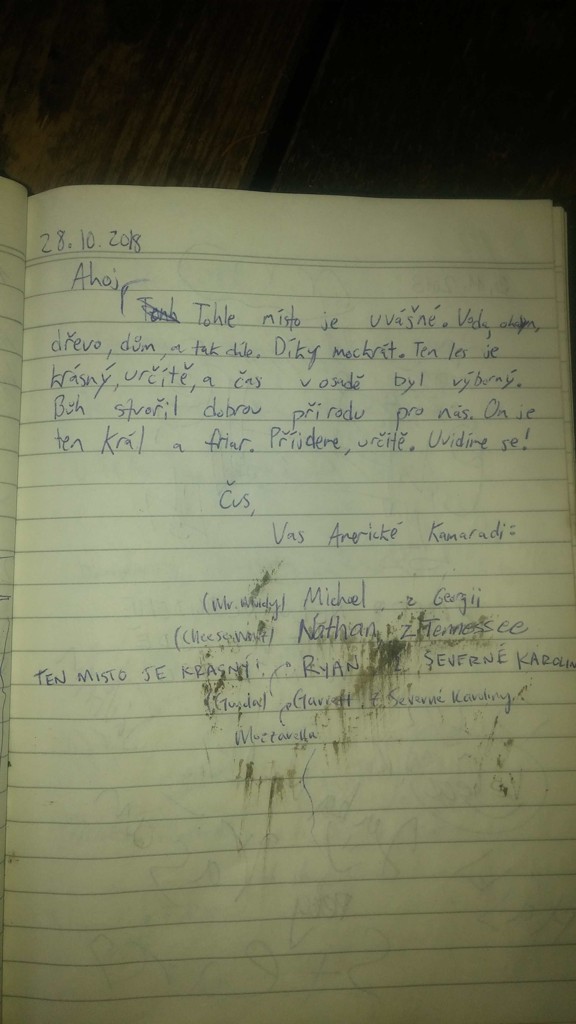 28.10.2018
Ahoj,
Tohle místo je uvášné. Voda, oheň,
dřevo, dům, a tak dále. Díky mockrát. Ten les je
krásný, určítě, a čas v osadě byl výborný.
Bůh stvořil dobrou přírodu pro nás. On je
ten Král a friar. Příjdeme, určitě. Uvidíme se!
Čus,
Vas Americké Kamaradi:
Michael z Georgii
Nathan z Tennessee
TEN MISTO JE KRASNY! RYAN Z SEVERNÉ KAROLIN
Garrett z Severné Karoliny
Mozzarella